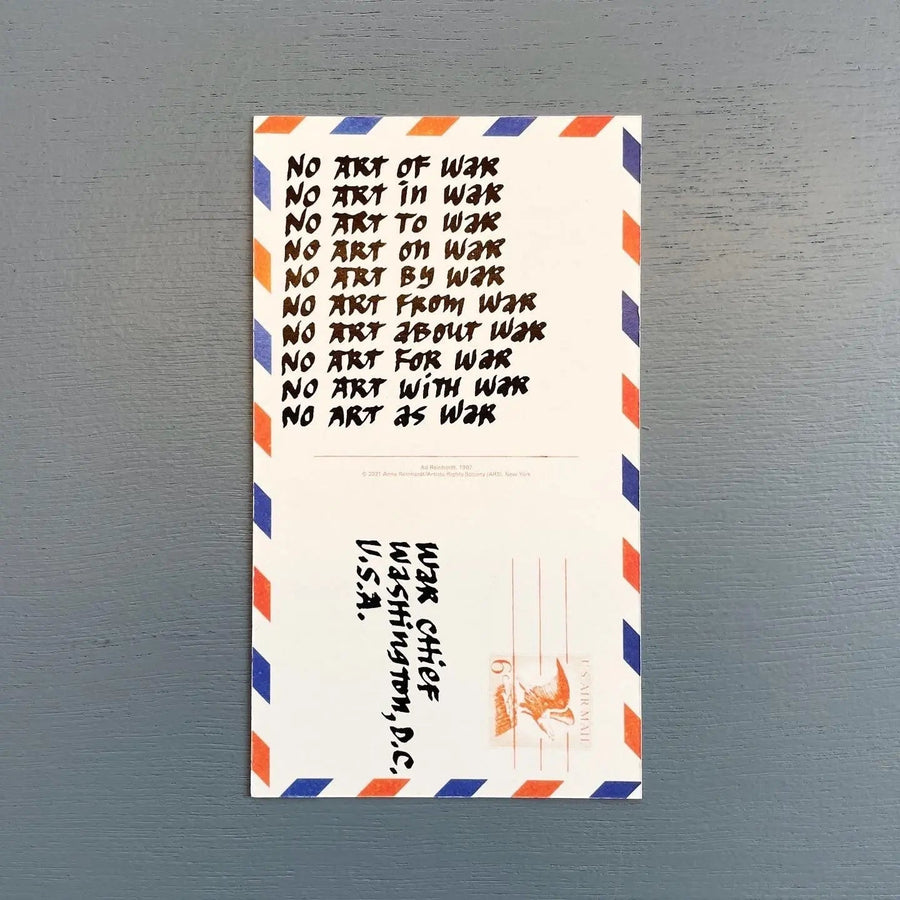 NO ART OF WAR
NO ART in WAR
NO ART TO WAR
NO ART on WAR
NO ART BY WAR
NO ART FROM WAR
NO ART ABOUT WAR
NO ART FOR WAR
NO ART WITH WAR
NO ART as WAR
Ad Reinhardt, 1967
© 2021 Anna Reinhardt/Artists Rights Society (ARS), New York
WAR CHIEF
WASHINGTON, D.C.
U.S.A.
U S AIR MAIL
6c